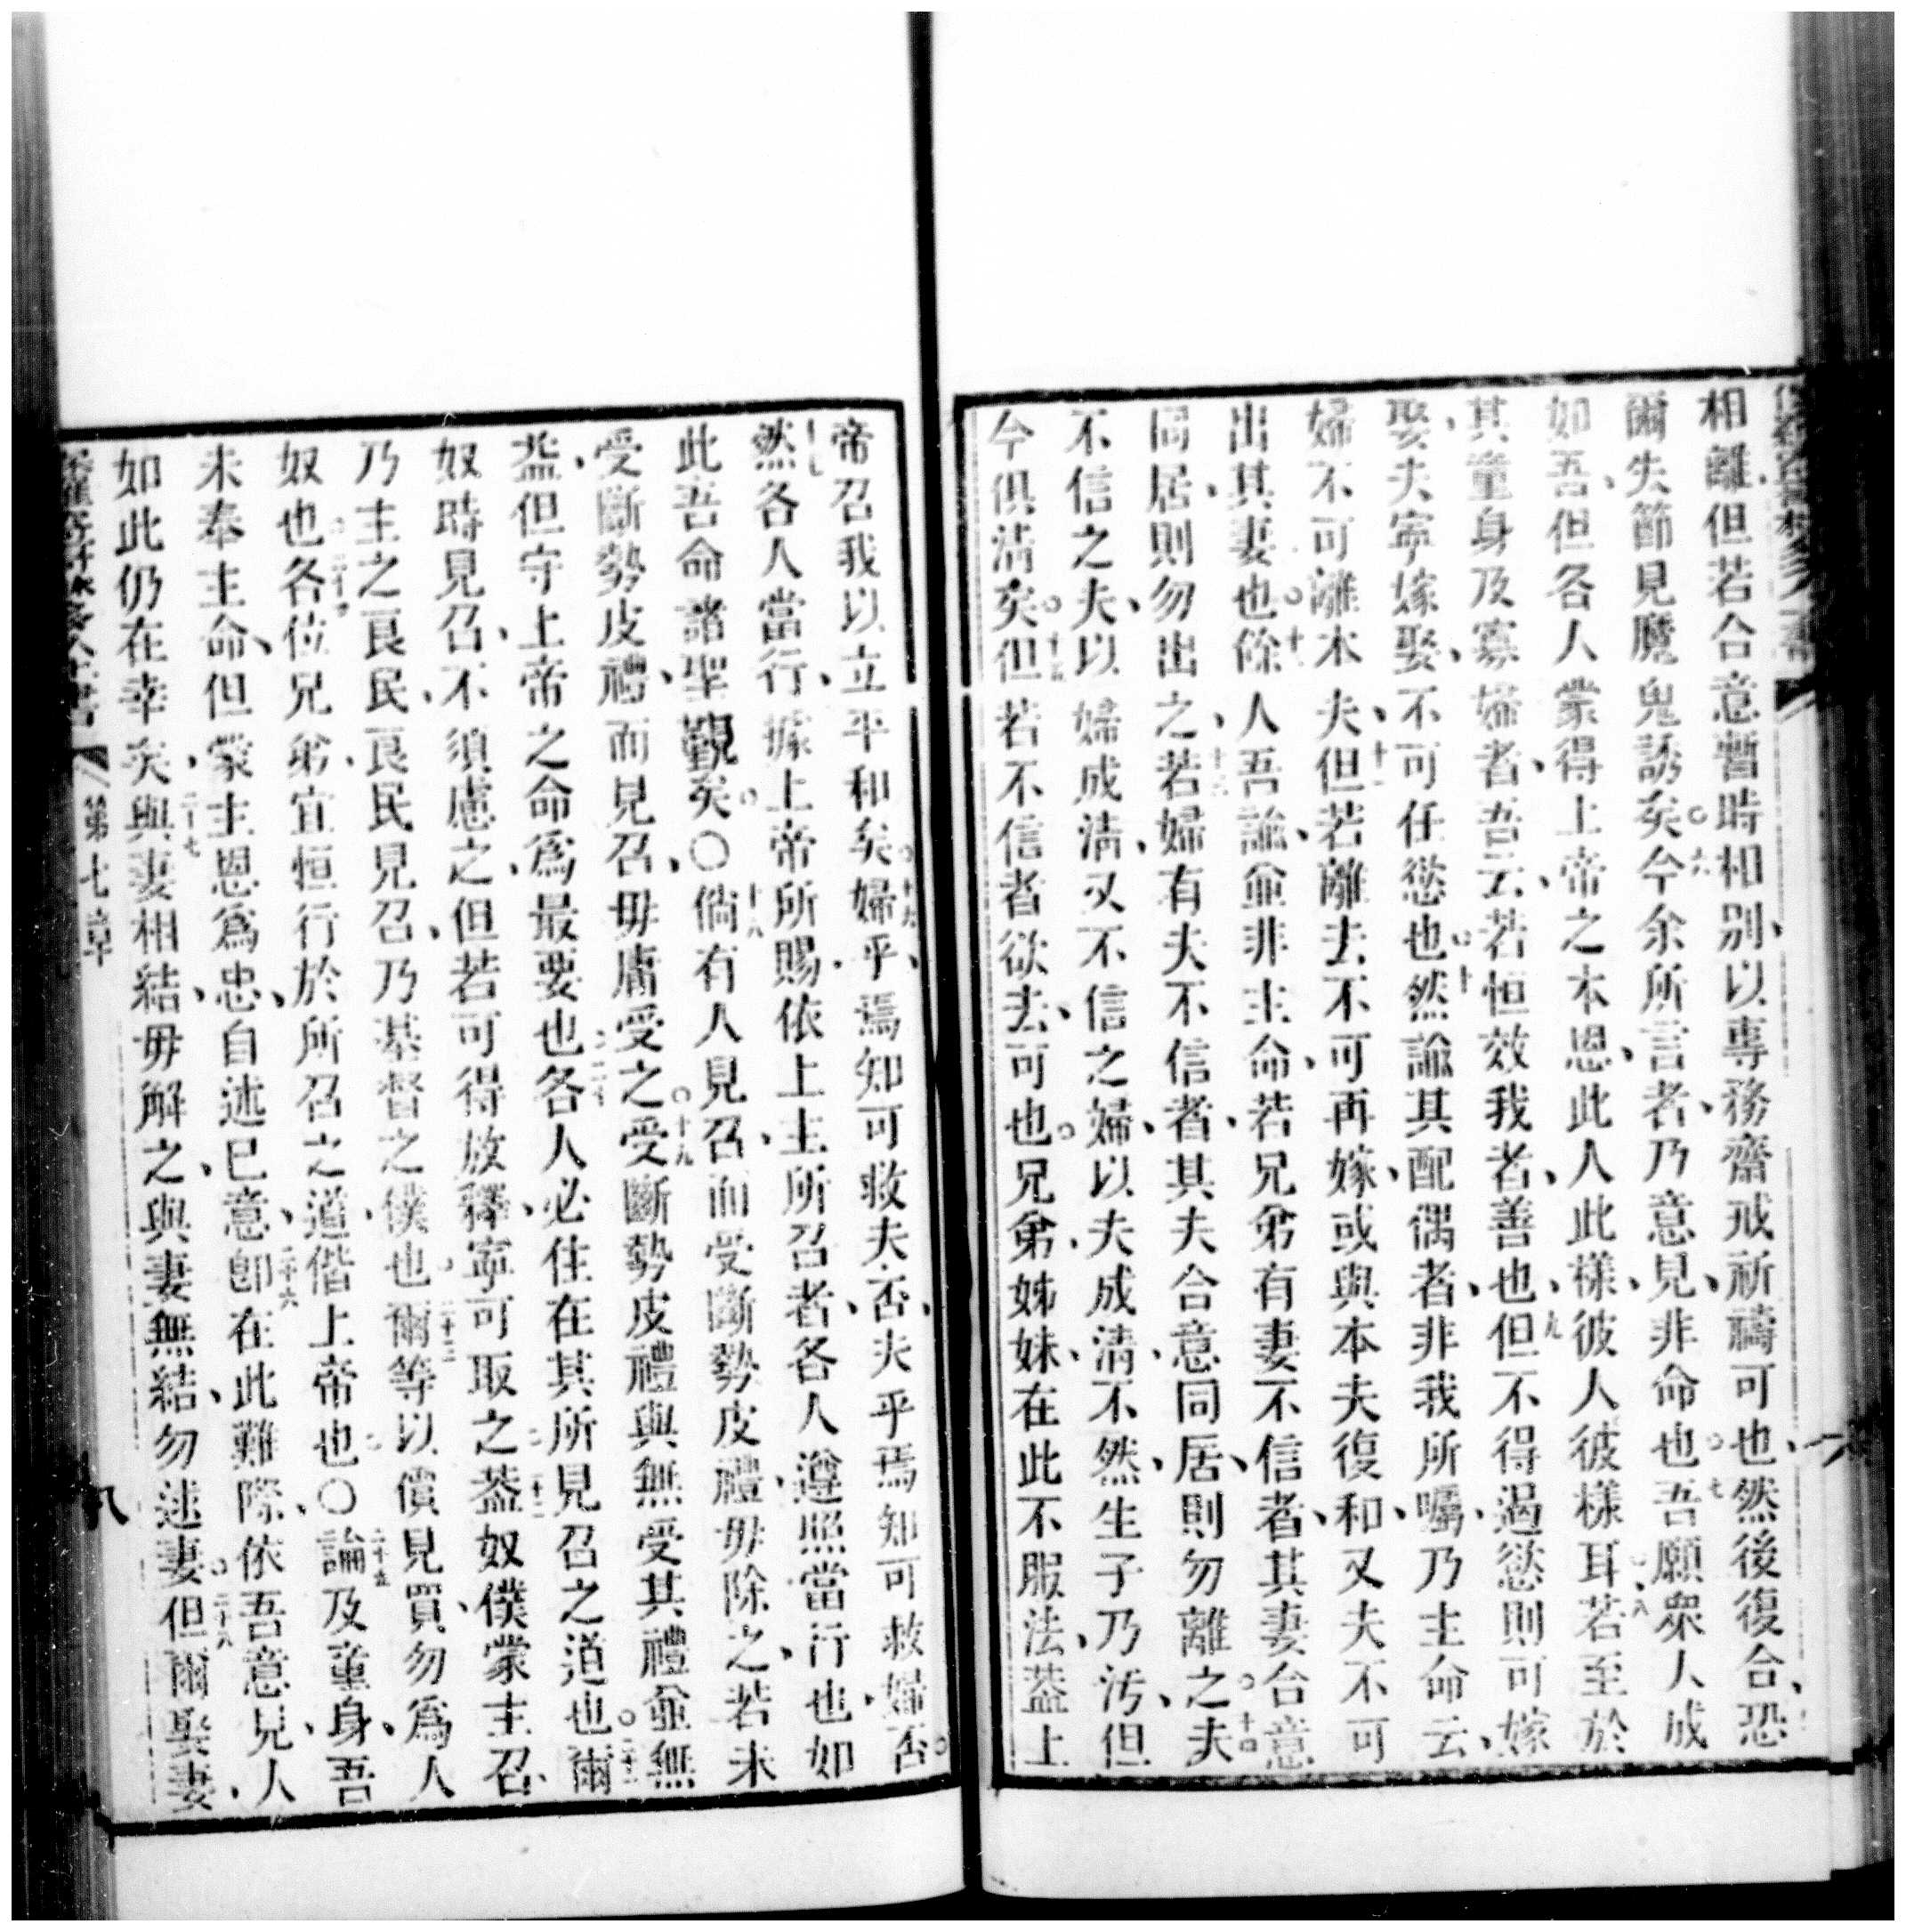 相離、但若合意暫時相別、以專務齋戒祈禱可也、然後復合、恐
爾失節見魔鬼誘矣。六今余所言者、乃意見、非命也。七吾願衆人成
如吾、但各人蒙得上帝之本恩、此人此樣、彼人彼樣耳。八若至於
其童身及寡婦者、吾云、若恒效我者、善也、九但不得過慾則可嫁
娶、夫寧嫁娶、不可任慾也。十然諭其配偶者、非我所囑、乃主命云、
婦不可離本夫、十一但若離去不可再嫁、或與本夫復和、又夫不可
出其妻也。十二餘人吾諭、並非主命、若兄弟有妻不信者、其妻合意
同居、則勿出之、十三若婦有夫不信者、其夫合意同居、則勿離之。十四夫
不信之夫、以婦成清、又不信之婦、以夫成清、不然、生子乃汚、但
今俱清矣。十五但若不信者欲去、可也。兄弟、姊妹、在此不服法、蓋上
帝召我以立平和矣。十六婦乎、焉知可救夫否、夫乎焉知可救婦否。
十七然各人當行、據上帝所賜、依上主所召者、各人遵照當行也、如
此吾命諸聖覲矣。〇十八倘有人見召、而受斷勢皮禮、毋除之、若未
受斷勢皮禮、而見召、毋庸受之。十九受斷勢皮禮與無受其禮並無
益、但守上帝之命、爲最要也。二十各人必住在其所見召之道也。二十一爾
奴時見召、不須慮之、但若可得放釋、寧可取之。二十二蓋奴僕蒙主召、
乃主之良民、良民見召、乃基督之僕也。二十三爾等以價見買、勿爲人
奴也。二十四各位兄弟、宜恒行於所召之道、偕上帝也。〇二十五論及童身、吾
未奉主命、但蒙主恩爲忠、自述己意、二十六卽在此難際、依吾意見、人
如此仍在幸矣、二十七與妻相結、毋解之、與妻無結、勿逑妻。二十八但爾娶妻、
第七章
八